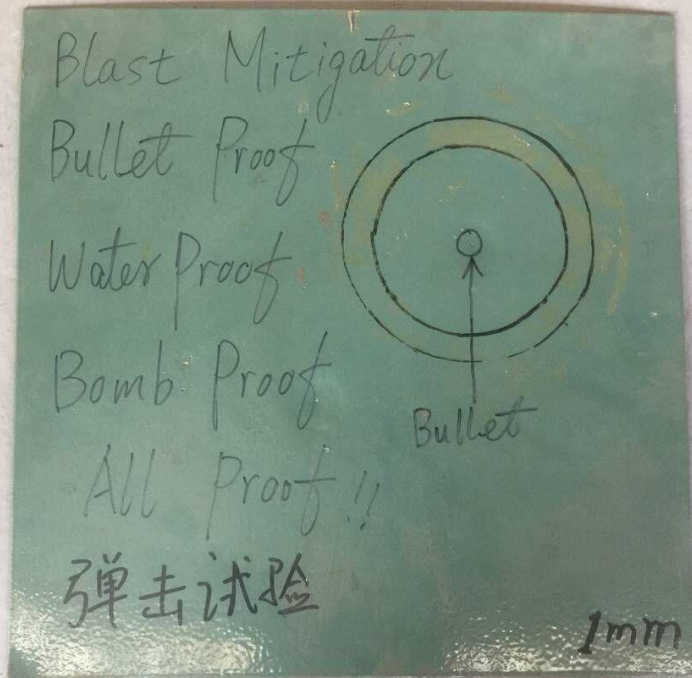 Blast Mitigation
Bullet Proof
Water Proof
Bomb Proof
Bullet
All Proof!!
弹击试验
1mm